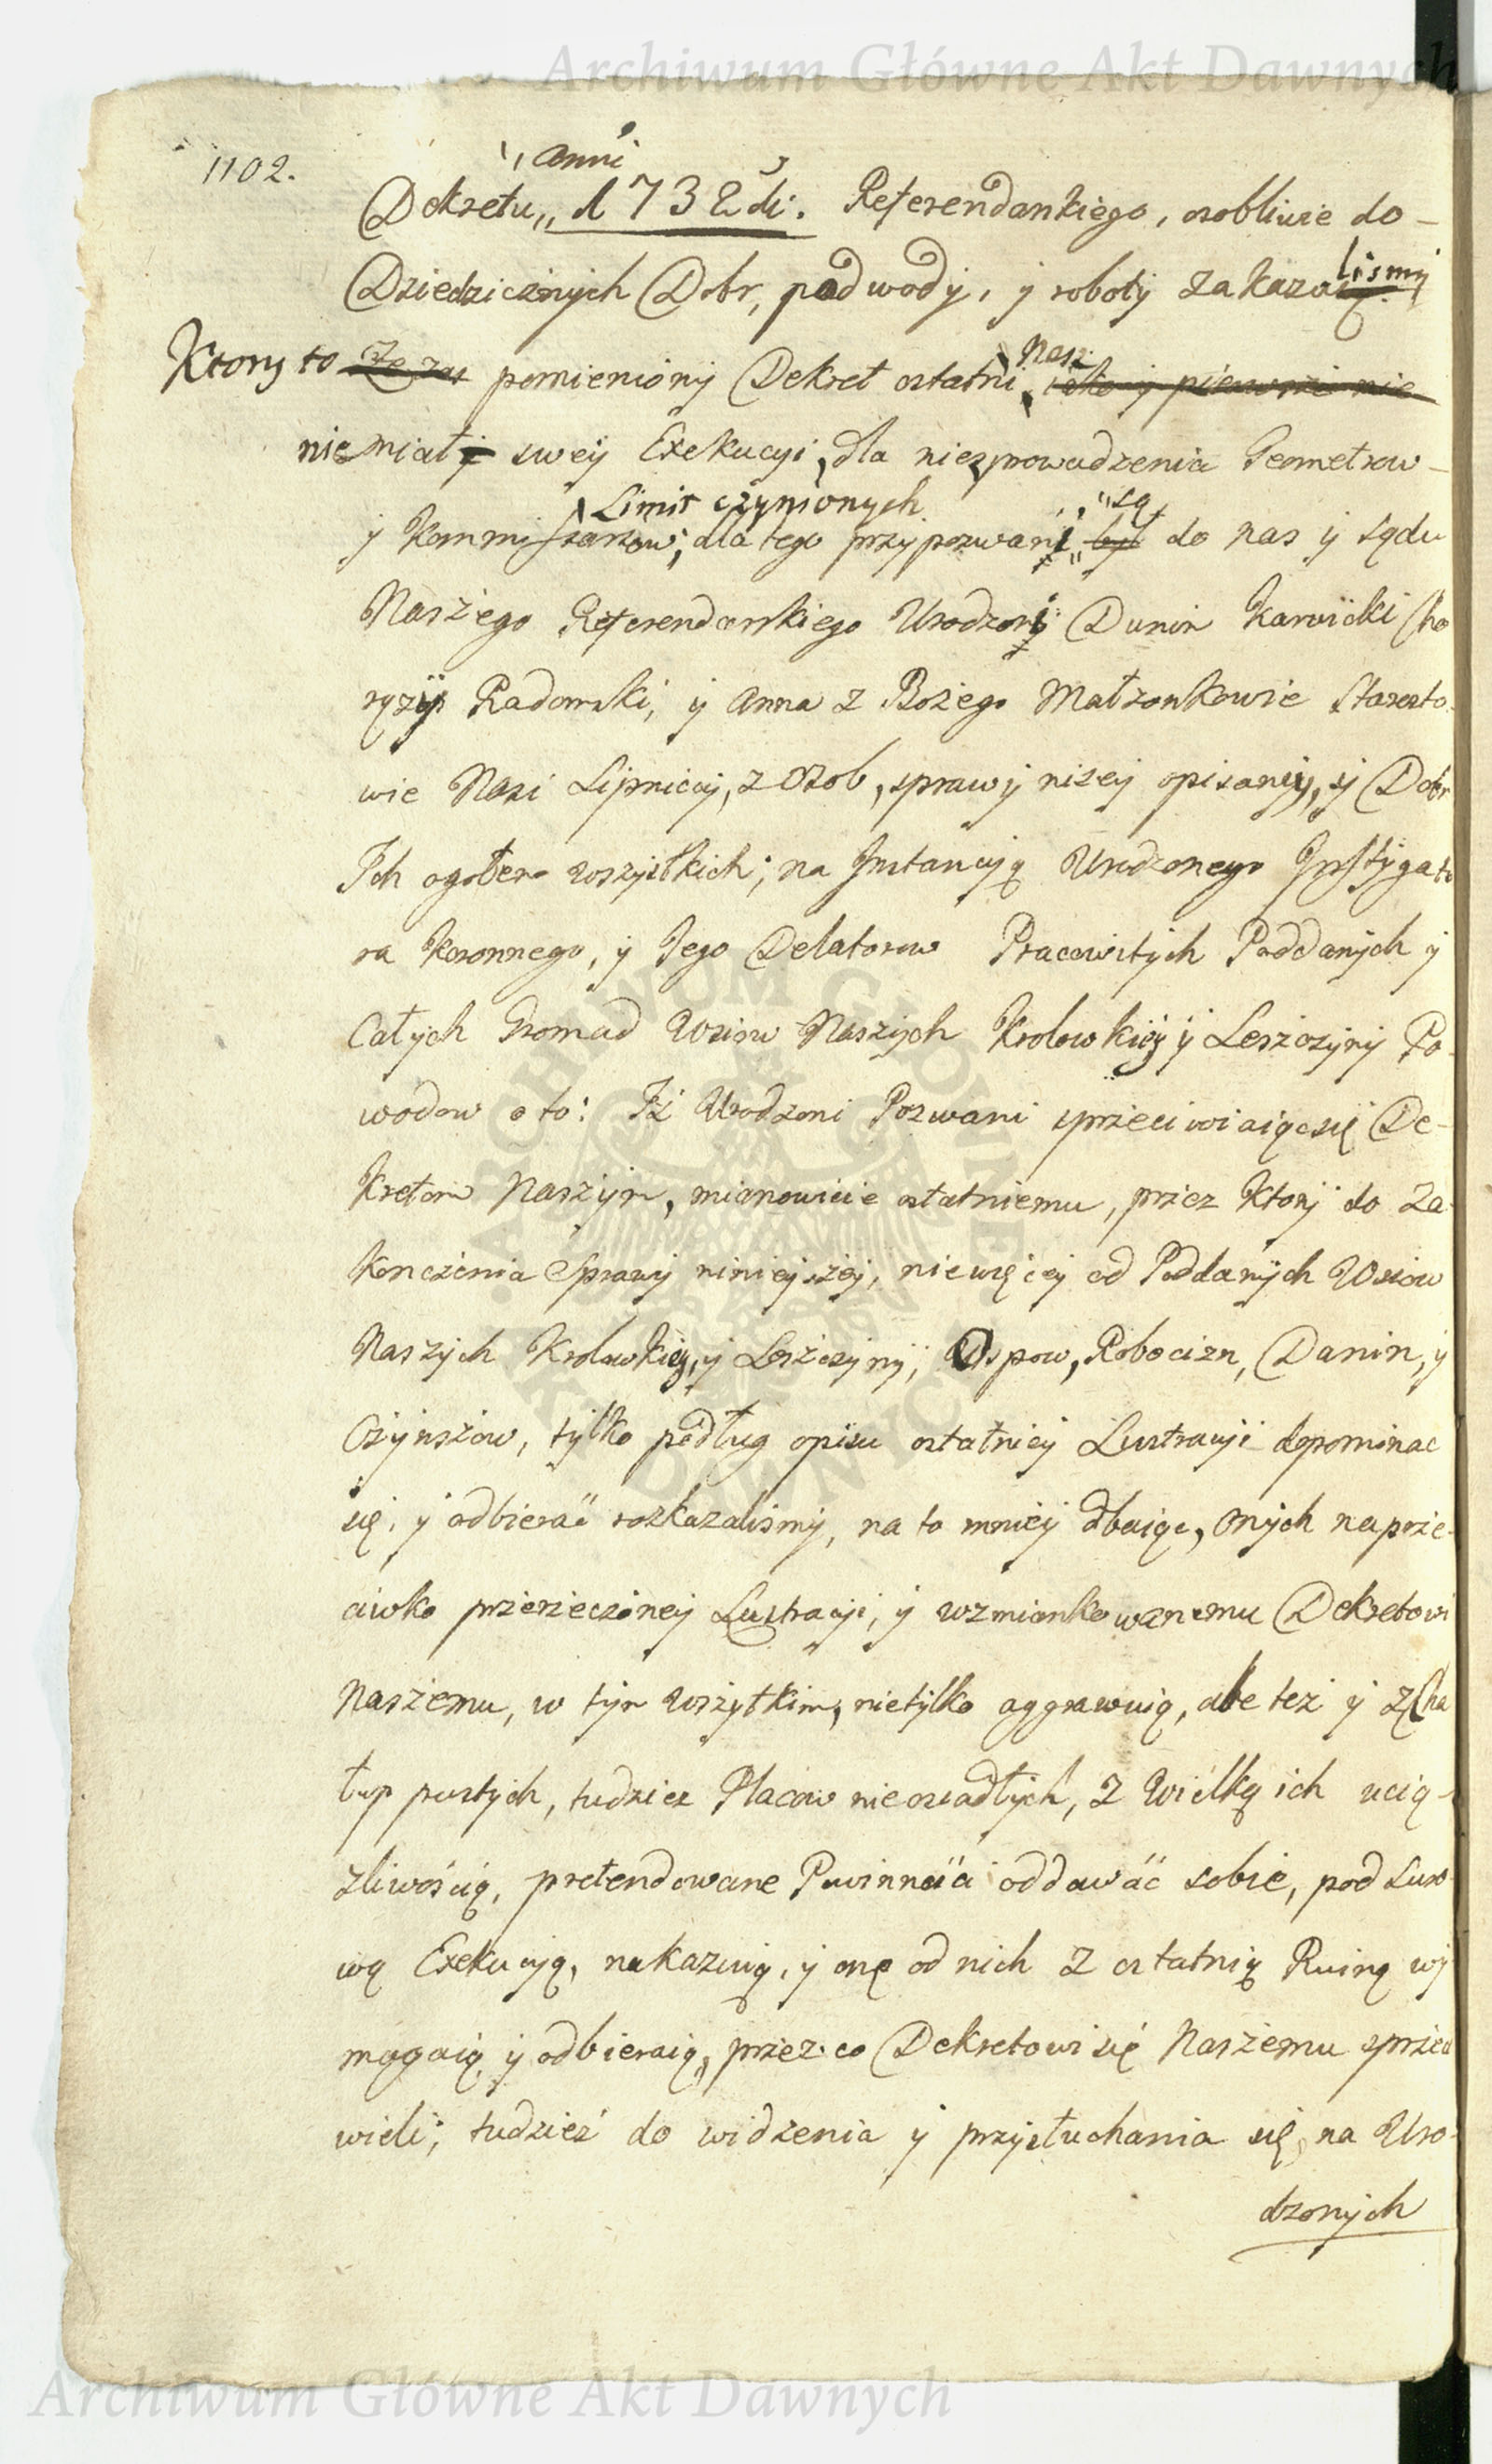 Archiwum Główne Akt Dawnych
1102.
Anni
Dekretu 1732di. Referendarskiego, osobliwie do-
Dziedzicznych Dobr, podwody, y roboty zakazalismy
Ktory to ze zas pomieniony Dekret ostatni Nasz iako y pierwszi nie
nie miał swey Exekucyi, dla niezprowadzenia Geometrow
Limit czynionych są
y Kommissarzow, dla tego przypozwani był do nas y sądu
Naszego Referendarskiego Urodzoni Dunin Karwicki Cho
rązy Radomski, y Anna z Bożego Małzonkowie Starosto-
wie Nasi Lipniccy, z Osob, sprawy nizey opisaney, y Dobr
Ich ogołem wszystkich; na Instancyą Urodzonego Instygato
ra Koronnego, y Jego Delatorow Pracowitych Poddanych y
Całych Gromad Wsiow Naszych Krolowkiey y Leszczyny Po-
wodow o to: Iż Urodzoni Pozwani sprzeciwiaiąc się De-
kretom Naszym, mianowicie ostatniemu, przez Ktory do Za-
konczenia Sprawy ninieyszey, niewięcey od Poddanych Wsiow
Naszych Krolowkiey, y Leszczyny, Ospow, Robocizn, Danin, y
Czynszow, tylko podług opisu ostatniey Lustracyi dopominac
się, y odbierać rozkazalismy, na to mniey dbaiąc, Onych naprze-
ciwko przerzeczoney Lustracyi, y wzmiankowanemu Dekretowi
Naszemu, w tym wszytkim, nietylko aggrawuią, ale też y z Cha
łup pustych, tudziez Placow nieosiadłych, z Wielką ich ucią-
zliwością, pretendowane Powinności oddawać sobie, pod Suro
wą Exekucyą, nakazuią, y onę od nich z ostatnią Ruiną wy
magaią y odbieraią, przez co Dekretowi się Naszemu sprzeci
wieli; tudzież do widzenia y przysłuchania się, na Uro-
dzonych
Archiwum Główne Akt Dawnych